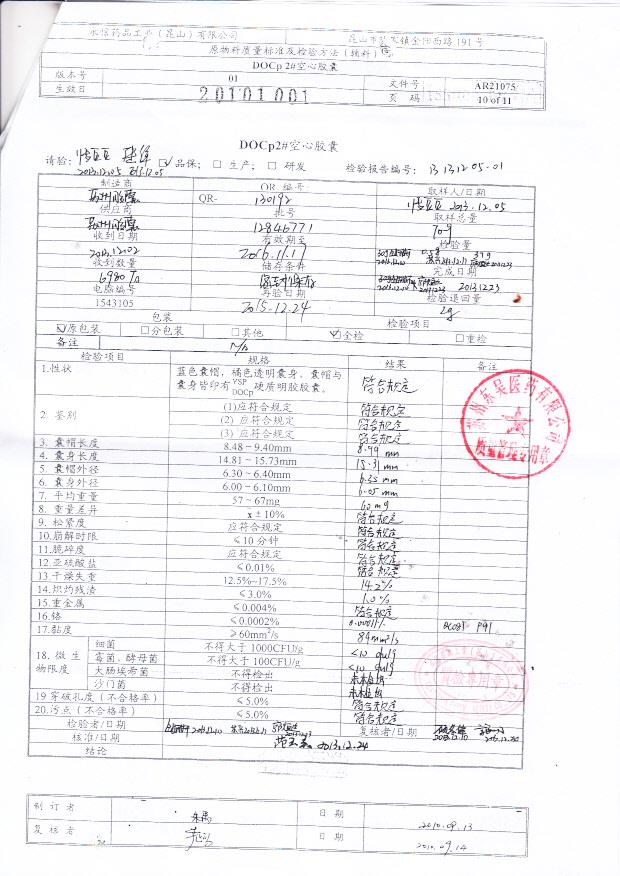 永信药品工业（昆山）有限公司 昆山市陆家镇金阳西路191号
原物料质量标准及检验方法（辅料）
DOCp 2#空心胶囊
版本号 01 文件号 AR21075
生效日 20101001 页 码 10 of 11
DOCp2#空心胶囊
请验： ☑品保； □ 生产； □ 研发 检验报告编号：131312-05-01
2013.12.05
制造商 QR 编号 取样人/日期
QR- 130192 2013.12.05
供应商 批号 取样总量
12846771 70g
收到日期 有效期至 检验量
2013.12.02 2016.11.17
收到数量 储存条件 完成日期
6980万 密封保存 20131223
电脑编号 再验日期 检验退回量
1543105 2015.12.24 2g
包装 检验项目
☑原包装 □分包装 □其他 ☑全检 □重检
备注 N/A
检验项目 规格 结果 备注
1.性状 蓝色囊帽，橘色透明囊身。囊帽与囊身皆印有 VSP DOCp 硬质明胶胶囊。 符合规定
2. 鉴别 (1)应符合规定 符合规定
(2) 应符合规定 符合规定
(3) 应符合规定 符合规定
3. 囊帽长度 8.48～9.40mm 8.99 mm
4. 囊身长度 14.81～15.73mm 15.31 mm
5. 囊帽外径 6.30～6.40mm 6.35 mm
6. 囊身外径 6.00～6.10mm 6.05 mm
7. 平均重量 57～67mg 60 mg
8. 重量差异 x±10% 符合规定
9. 松紧度 应符合规定 符合规定
10.崩解时限 ≤10 分钟 符合规定
11.脆碎度 应符合规定 符合规定
12.亚硫酸盐 ≤0.01% 符合规定
13.干燥失重 12.5%~17.5% 14.2%
14.炽灼残渣 ≤3.0% 1.0%
15.重金属 ≤0.004% 符合规定
16.铬 ≤0.0002% P91
17.黏度 ≥60mm²/s 84mm²/s
18. 微生物限度 细菌 不得大于 1000CFU/g <10 cfu/g
霉菌、酵母菌 不得大于 100CFU/g <10 cfu/g
大肠埃希菌 不得检出 未检出
沙门菌 不得检出 未检出
19 穿破孔度（不合格率） ≤5.0% 符合规定
20.污点（不合格率） ≤5.0% 符合规定
检验者/日期 2013.12.10 复核者/日期
核准/日期 2013.12.24
结论
制 订 者 朱禹 日 期 2010.09.13
复 核 者 日 期 2010.09.14
医药有限公司